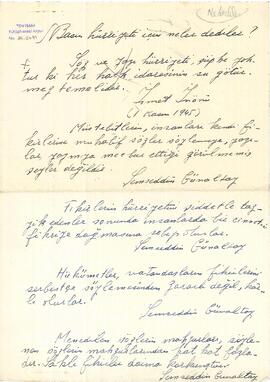 Ne dediler
Basın hürriyeti için neler dediler?
Söz ve yazı hürriyeti, şüphe yok-
tur ki her halk idaresinin su götür-
mez temelidir.
İsmet İnönü
(1 Kasım 1945)
Müstebitlerin, insanları kendi fi-
kirlerine muhalif sözler söylemeye, yazı-
lar yazmıya mecbur ettiği görülmemiş
şeyler değildir.
Şemseddin Günaltay
Fikirlerin hürriyetini şiddetle taz-
yik edenler sonunda insanlarda bu
fikriyle doğmasına sebep olurlar.
Şemseddin Günaltay
Hükûmetler, vatandaşların fikirlerini
serbestçe söylemesinden zararlı değil, kâr-
lı olurlar!
Şemseddin Günaltay
Menedilen sözlerin mahzurları, söyle-
nen sözlerin mahzurlarından kat kat fazla-
dır. Saklı fikirler daima korkunçtur.
Şemseddin Günaltay